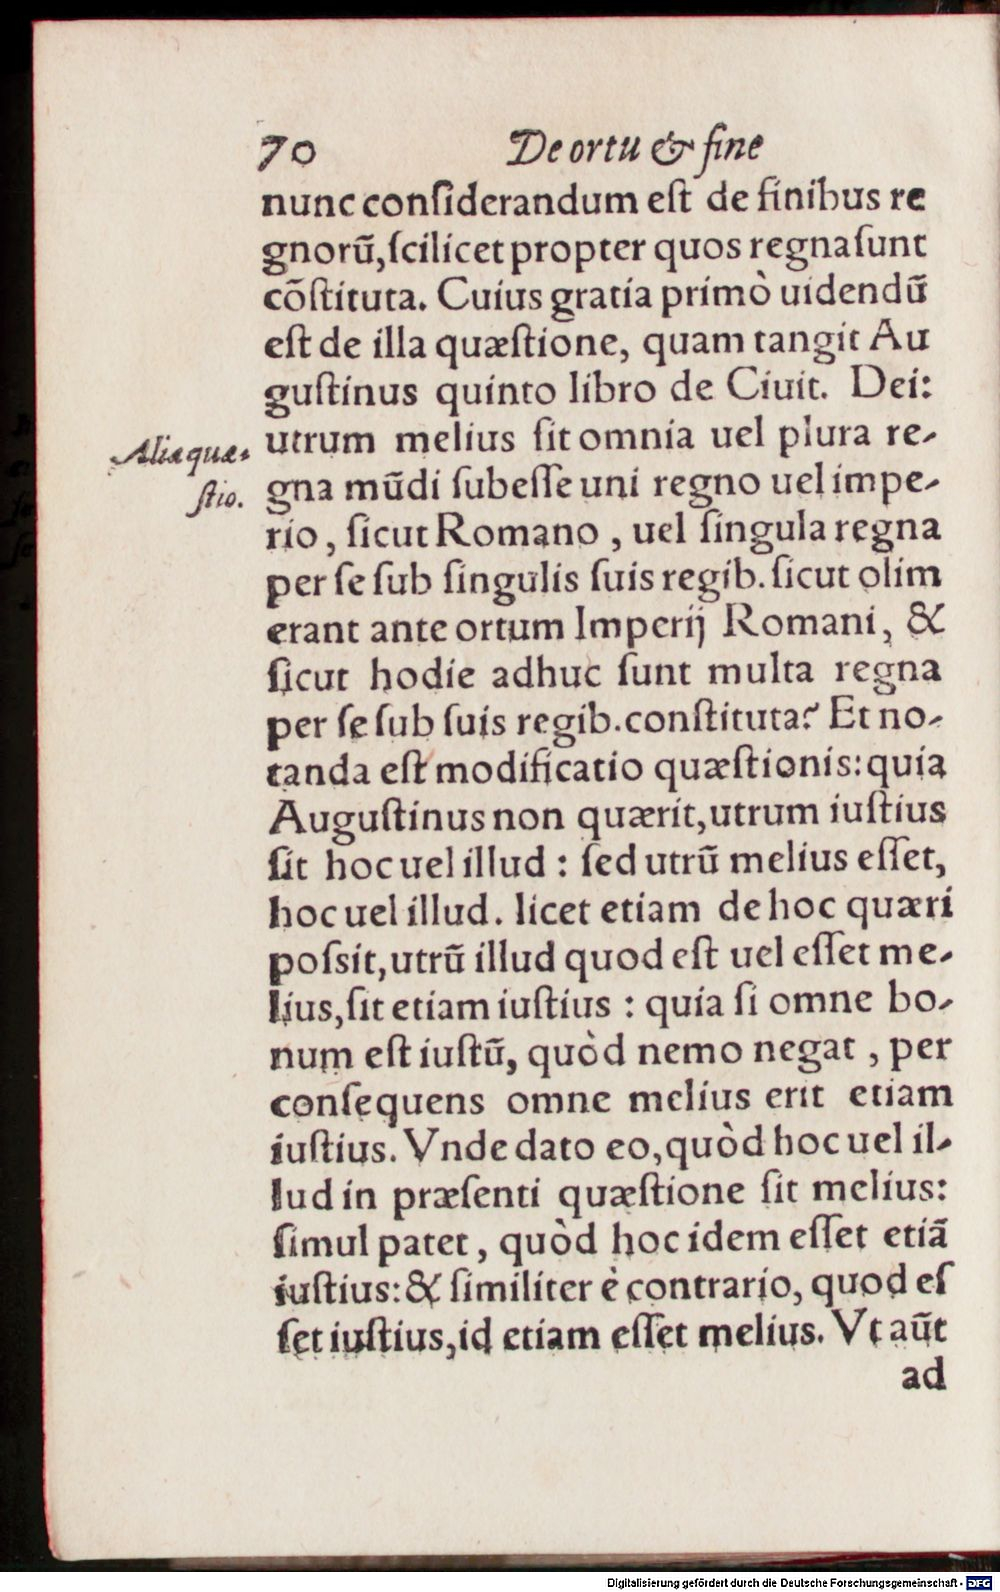 70 De ortu & fine
nunc conſiderandum eſt de finibus re
gnorũ, ſcilicet propter quos regna ſunt
cõſtituta. Cuius gratia primò uidendũ
eſt de illa quæſtione, quam tangit Au
guſtinus quinto libro de Ciuit. Dei:
Alia quæ-
ſtio.
utrum melius ſit omnia uel plura re-
gna mũdi ſubeſſe uni regno uel impe-
rio, ſicut Romano, uel ſingula regna
per ſe ſub ſingulis ſuis regib. ſicut olim
erant ante ortum Imperij Romani, &
ſicut hodie adhuc ſunt multa regna
per ſe ſub ſuis regib. conſtituta? Et no-
tanda eſt modificatio quæſtionis: quia
Auguſtinus non quærit, utrum iuſtius
ſit hoc uel illud: ſed utrũ melius eſſet,
hoc uel illud. licet etiam de hoc quæri
poſsit, utrũ illud quod eſt uel eſſet me-
lius, ſit etiam iuſtius: quia ſi omne bo-
num eſt iuſtũ, quòd nemo negat, per
conſequens omne melius erit etiam
iuſtius. Vnde dato eo, quòd hoc uel il-
lud in præſenti quæſtione ſit melius:
ſimul patet, quòd hoc idem eſſet etiã
iuſtius: & ſimiliter è contrario, quod eſ
ſet iuſtius, id etiam eſſet melius. Vt aũt
ad
Digitalisierung gefördert durch die Deutsche Forschungsgemeinschaft - DFG